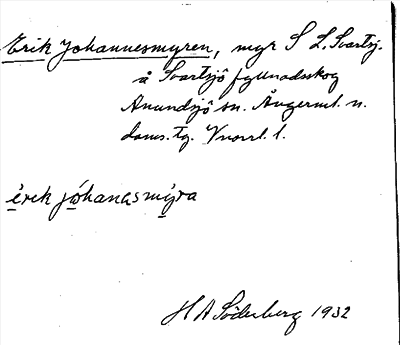 Erik Johannesmyren, myr S L. Svartsj.
å Svartsjö fyllnadsskog
Anundsjö sn. Ångerml. n.
doms. tg. Vnorrl. l.
èrek jóhanasmỳra
H A Söderberg 1932